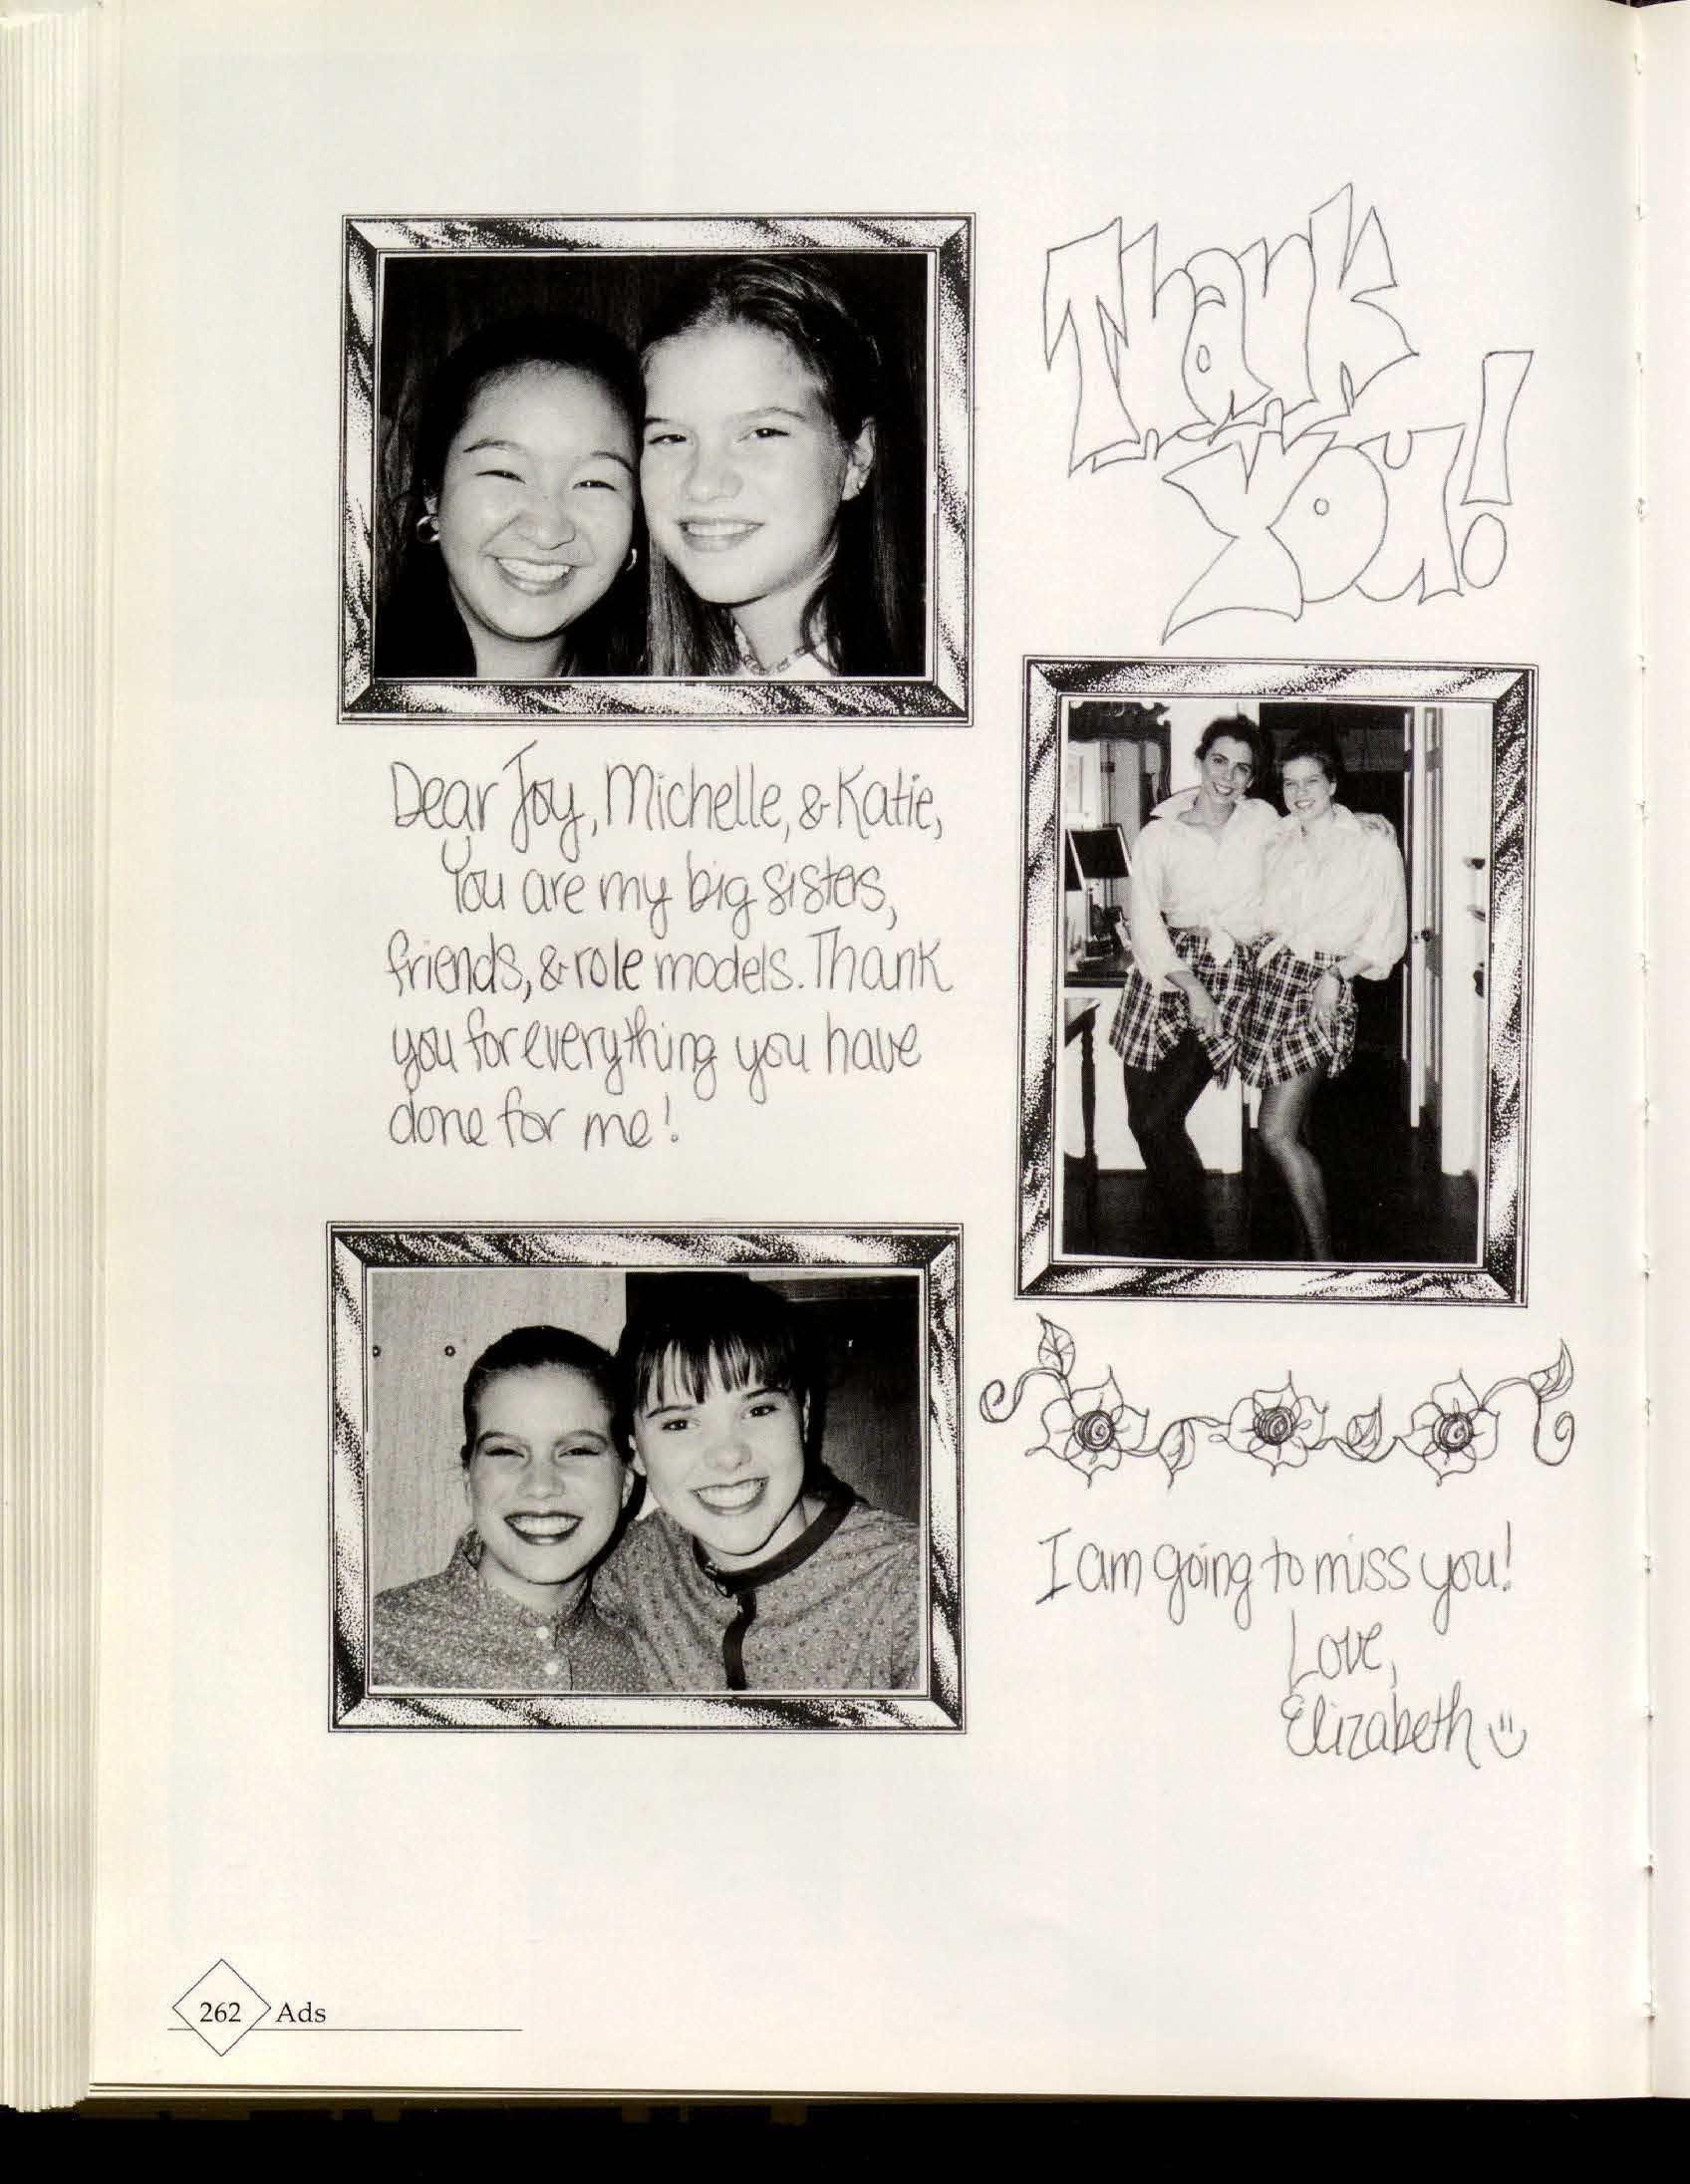 Thank
You!
Dear Joy, Michelle, & Katie,
You are my big sisters,
friends, & role models. Thank
you for everything you have
done for me!
I am going to miss you!
Love,
Elizabeth
262 Ads